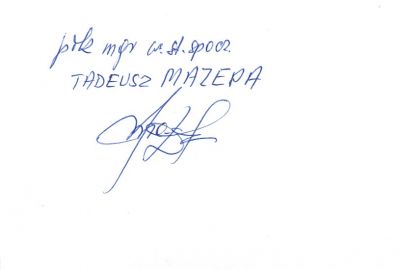 płk mgr w. st. spocz.
TADEUSZ MAZEPA